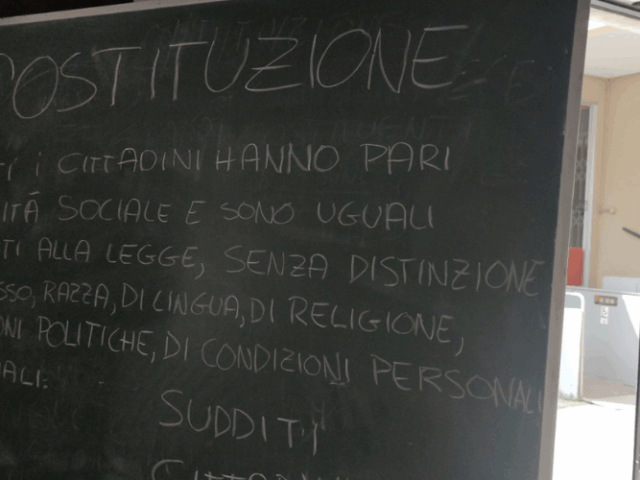 COSTITUZIONE
TI I CITTADINI HANNO PARI
ITÁ SOCIALE E SONO UGUALI
TI ALLA LEGGE, SENZA DISTINZIONE
SSO, RAZZA, DI LINGUA, DI RELIGIONE,
ONI POLITICHE, DI CONDIZIONI PERSONALI
IALI.
SUDDITI